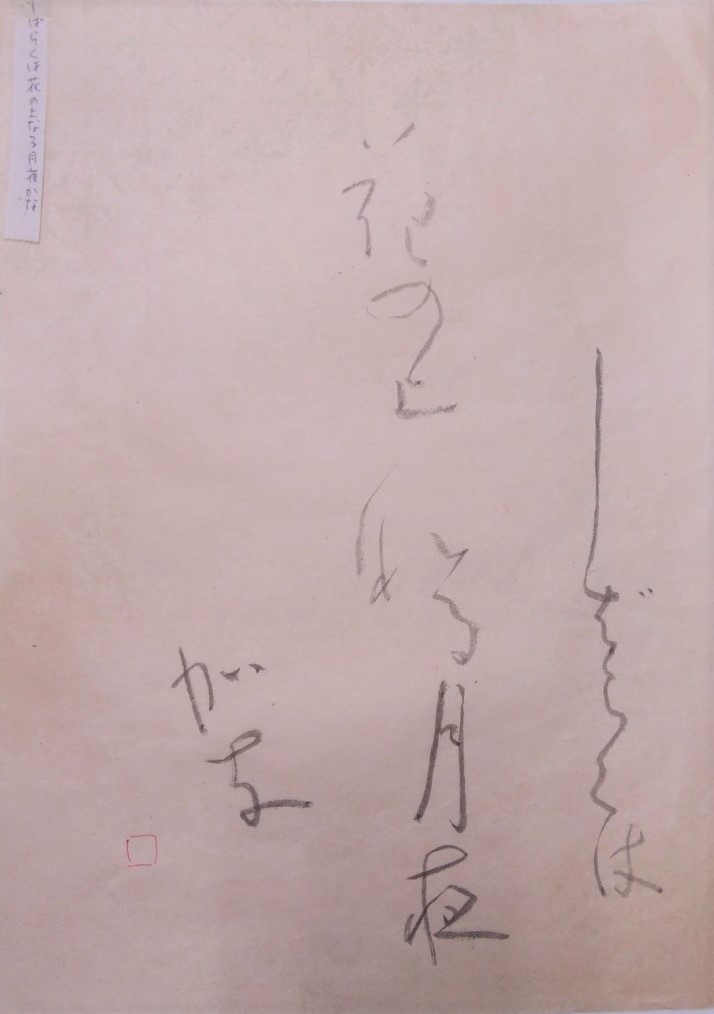 しばらくは
花の上なる月夜
かな
しばらくは花の上なる月夜かな